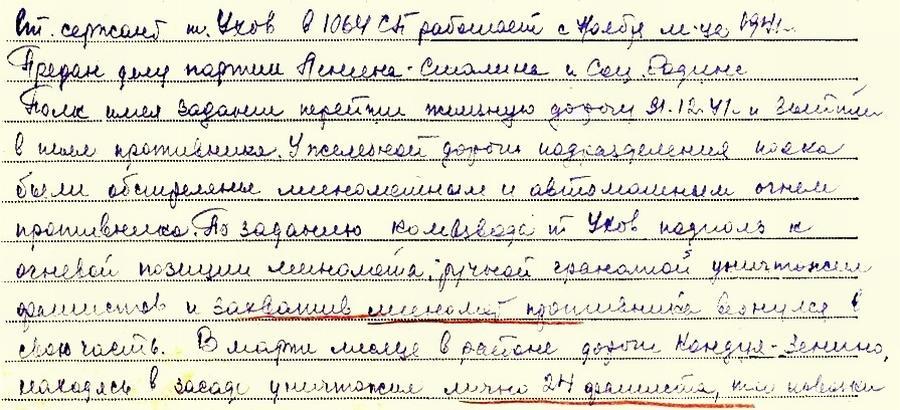 Ст. сержант т. Ухов в 1064 СП работает с Ноября м-ца 1941г.
Предан делу партии Ленина-Сталина и Соц. Родине
Полк имея задании перейти железную дорогу 31.12.41г. и зайти
в тыл противника. У железной дороги подразделения полка
были обстреляны минометным и автоматным огнем
противника. По заданию комвзвода т Ухов подполз к
огневой позиции миномета, ручной гранатой уничтожил
фашистов и захватив миномёт противника вернулся в
свою часть. В марте месяце в районе дороги Кондуя-Зенино,
находясь в засаде уничтожил лично 24 фашиста, три повозки